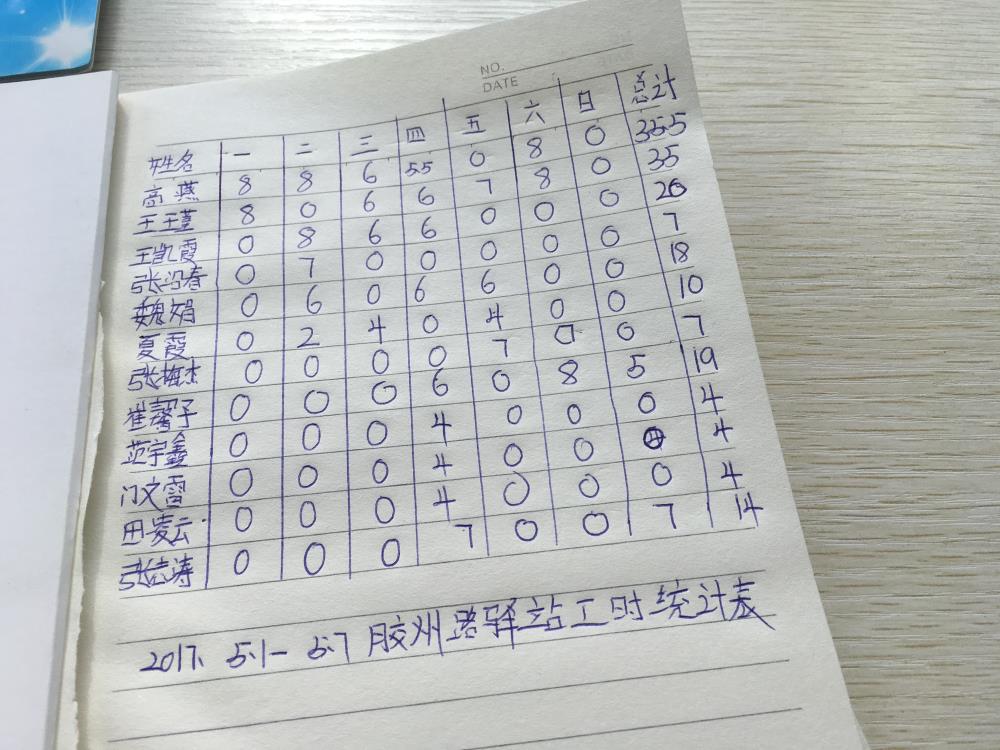 NO.
DATE
姓名 一 二 三 四 五 六 日 总计
高燕 8 8 6 5.5 0 8 0 35.5
王王瑾 8 0 6 6 7 8 0 35
王凯霞 0 8 6 6 0 0 0 20
张沿春 0 7 0 0 0 0 0 7
魏娟 0 6 0 6 6 0 0 18
夏霞 0 2 4 0 4 0 0 10
张梅杰 0 0 0 0 7 0 0 7
崔馨子 0 0 0 6 0 8 5 19
范宇鑫 0 0 0 4 0 0 0 4
门文雪 0 0 0 4 0 0 0 4
田凌云 0 0 0 4 0 0 0 4
张志涛 0 0 0 7 0 0 7 14
2017. 5.1-5.7 胶州路驿站工时统计表